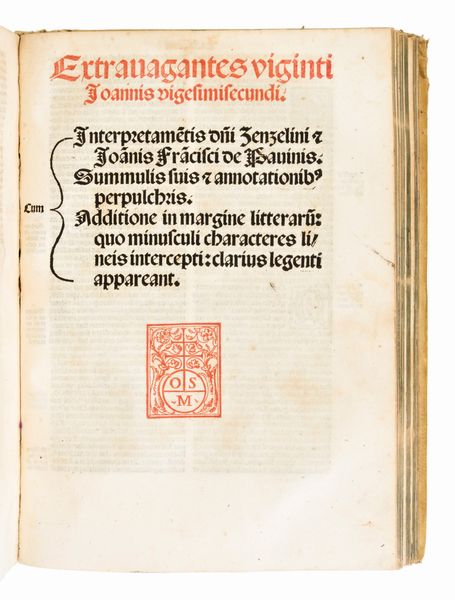 Extrauagantes viginti
Joannis vigesimisecundi.
Interpretamētis dñi Zenzelini ⁊
Joānis Frācisci de Pauinis.
Summulis suis ⁊ annotationibꝰ
perpulchris.
Cum
Additione in margine litterarū:
quo minusculi characteres li/
neis intercepti: clarius legenti
appareant.
O S
M